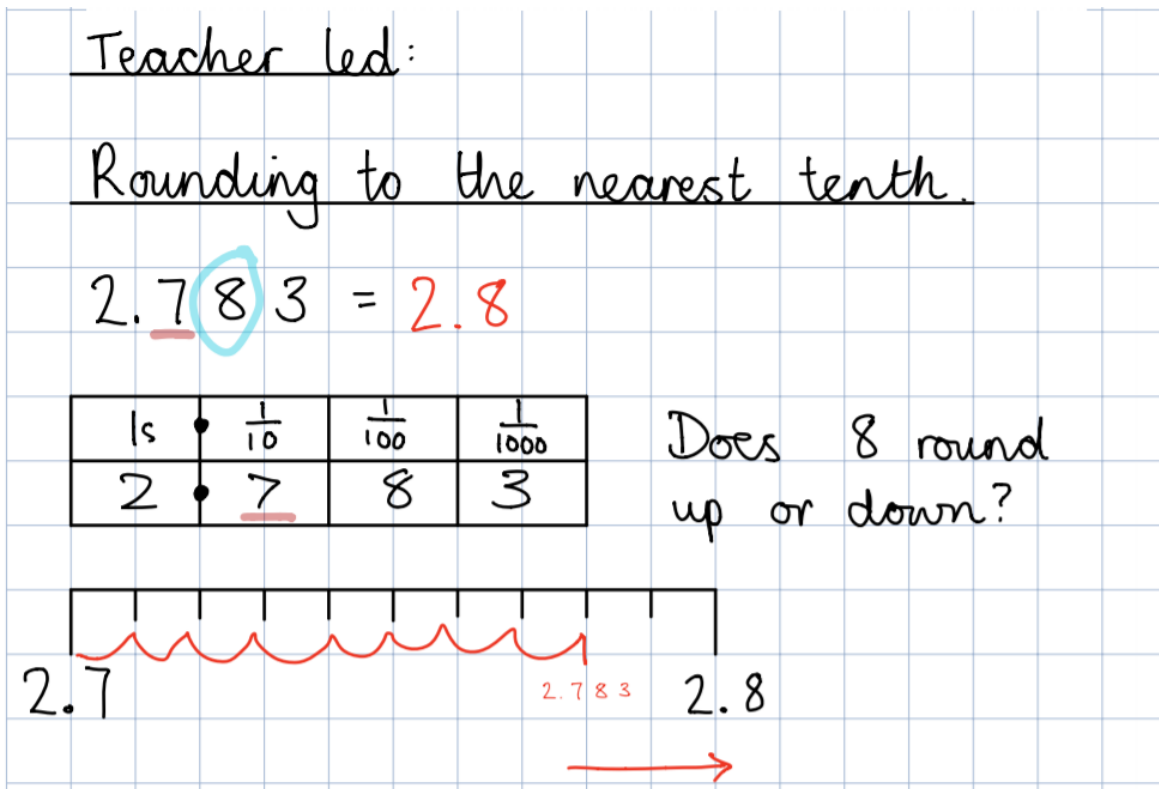 Teacher led:
Rounding to the nearest tenth.
2.783 = 2.8
1s • 1/10 1/100 1/1000
2 • 7 8 3
Does 8 round
up or down?
2.7 2.783 2.8